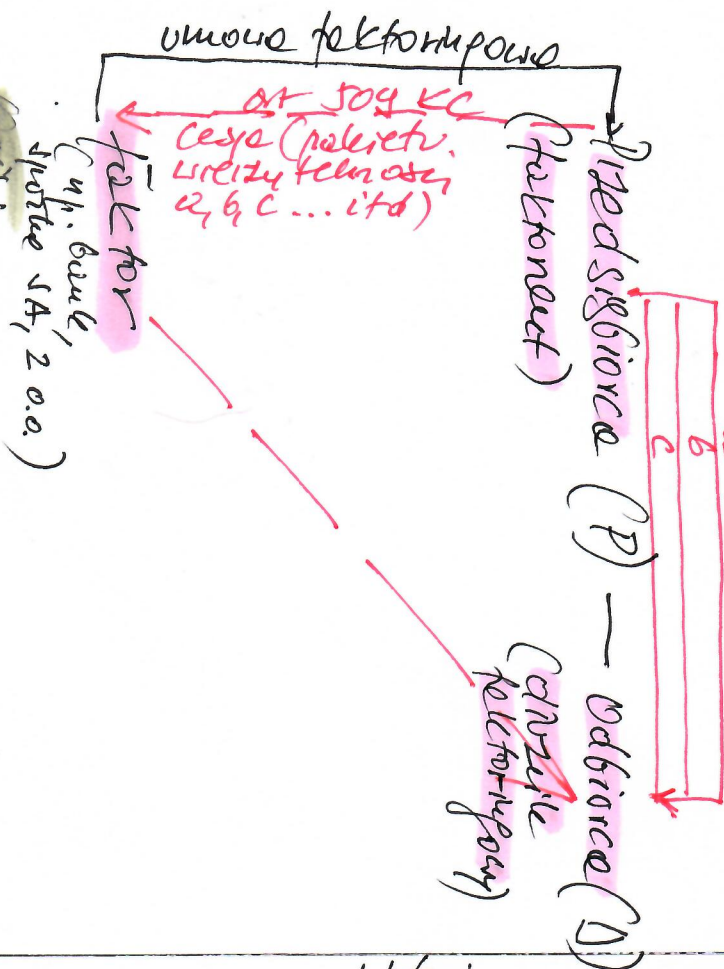 umowa faktoringowa
art 509 KC
cesja (pakietu
wierzytelności
a, b, c ... itd)
Przedsiębiorca (P) — Odbiorca (D)
(faktorant)
(dłużnik
faktoringowy)
b
c
faktor
(np. bank,
spółka SA, z o.o.)